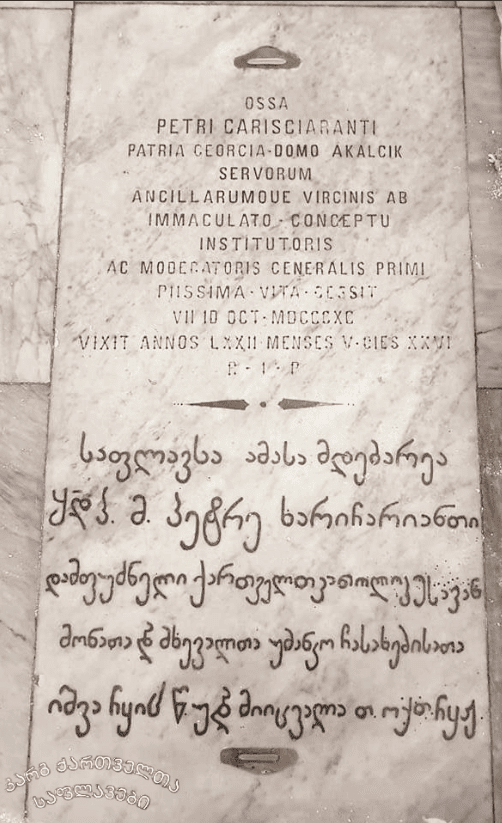 OSSA
PETRI CARISCIARANTI
PATRIA GEORGIA·DOMO AKALCIK
SERVORUM
ANCILLARUMQUE VIRGINIS AB
IMMACULATO · CONCEPTU
INSTITUTORIS
AC MODERATORIS GENERALIS PRIMI
PIISSIMA · VITA · CESSIT
VII ID OCT· MDCCCXC
VIXIT ANNOS LXXII MENSES V· DIES XXVI
R · I · P
საფლავსა ამასა მდებარეა
ყდპ. მ. პეტრე ხარიჩარიანთი
დამფუძნელი ქართველთ
მონათა და მხევალთა უმანკო ჩასახებისათა
იშვა ჩყიც მიიცვალა თ. ჩყჟ.
კარგ ქართველთა
საფლავები